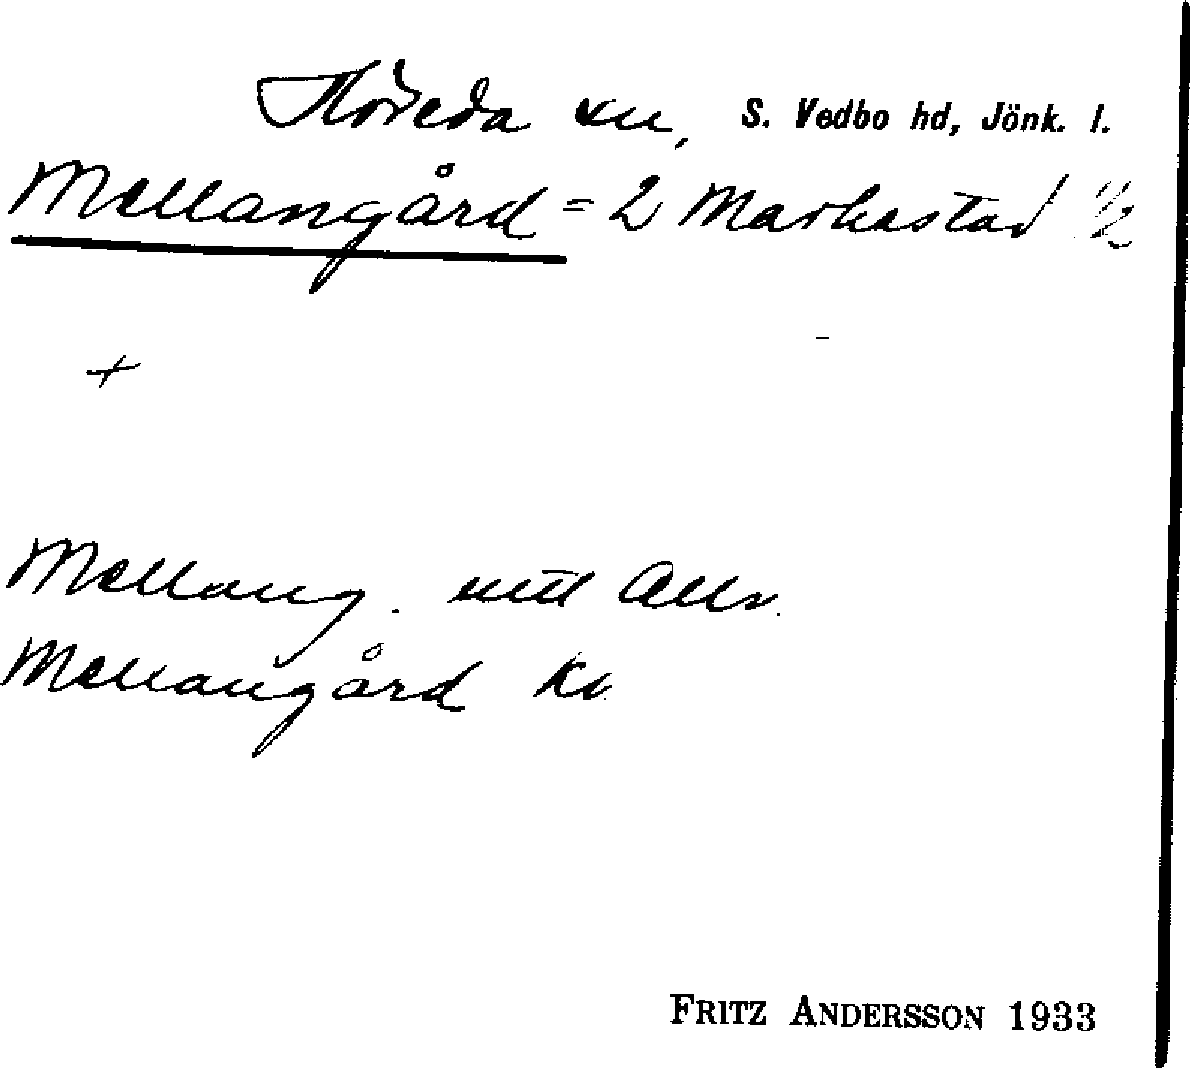 Flöreda sn, S. Vedbo hd, Jönk. l.
Mellangård = 2 Markestad 1/2
+
Mellang. uttl Allv.
Mellangård Kv
FRITZ ANDERSSON 1933